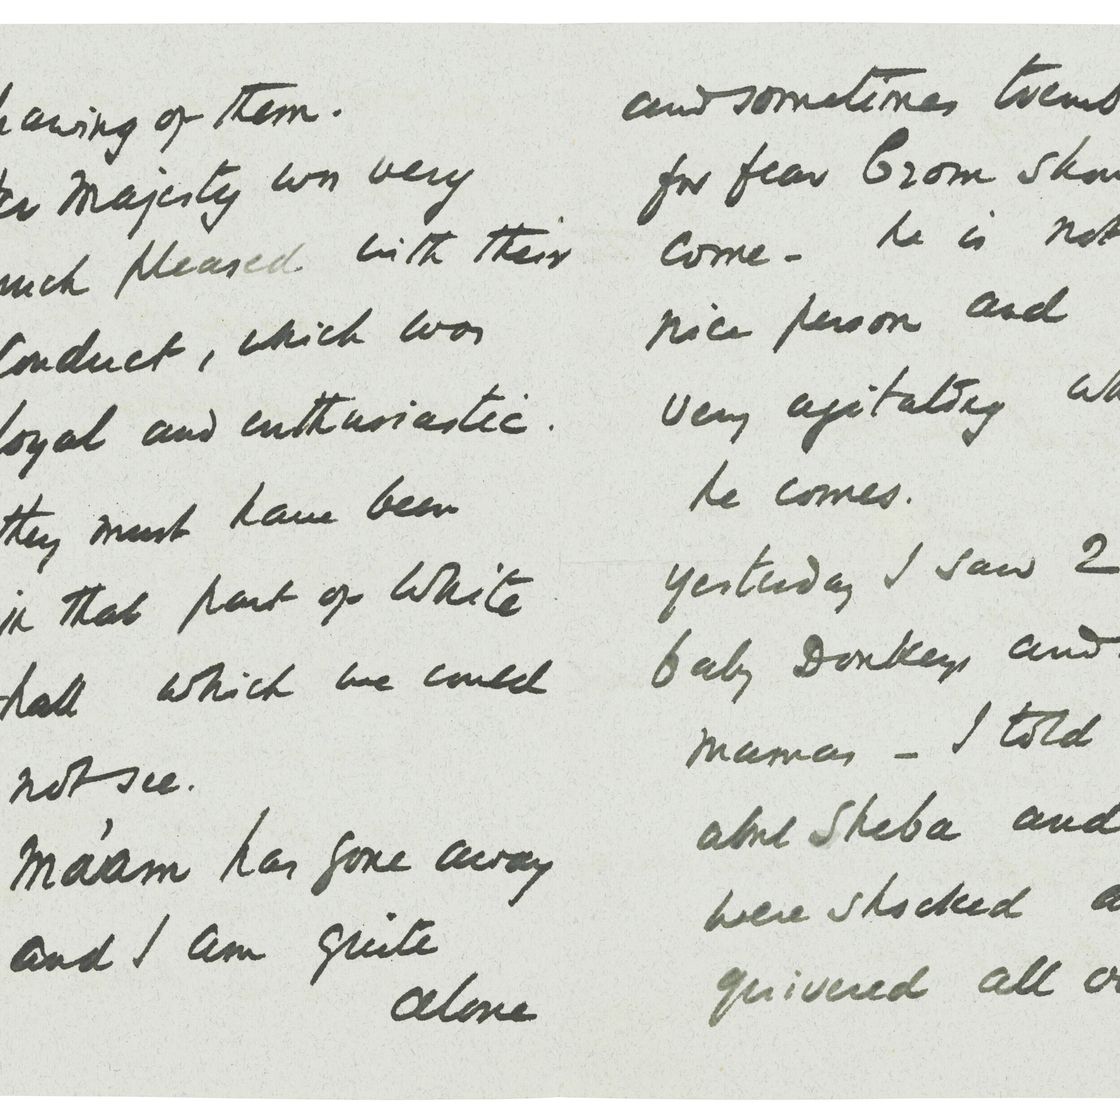 hawing of them.
er Majesty was very
much pleased with their
Conduct, which was
loyal and enthusiastic.
they must have been
in that part of White
hall which we could
not see.
Ma'am has gone away
and I am quite
alone
and sometimes trembl
for fear Crom shou
come - he is not
nice person and
very agitating wh
he comes.
yesterday I saw 2
baby Donkeys and
mamas - I told
about Sheba and
were shocked a
quivered all ov